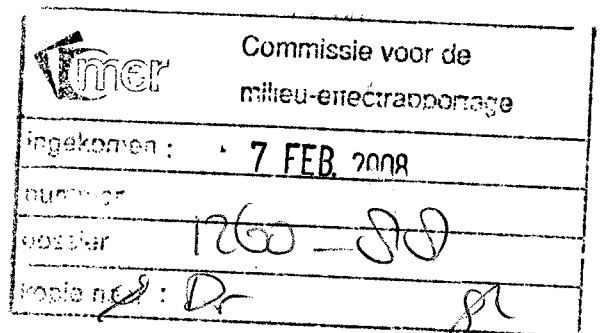 mer
Commissie voor de
milieu-effectrapportage
ingekomen : 7 FEB. 2008
nummer
dossier 1260 –
kopie naar : Dr